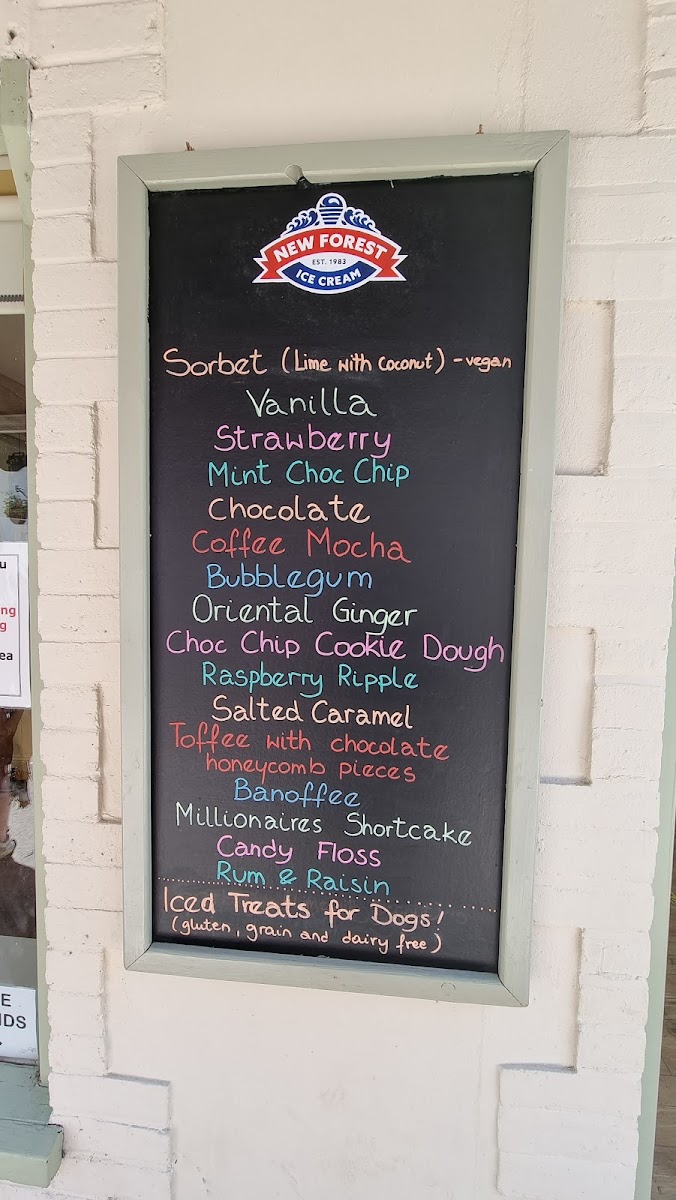 NEW FOREST
EST. 1983
ICE CREAM
Sorbet (Lime with Coconut) - vegan
Vanilla
Strawberry
Mint Choc Chip
Chocolate
Coffee Mocha
Bubblegum
Oriental Ginger
Choc Chip Cookie Dough
Raspberry Ripple
Salted Caramel
Toffee with chocolate
honeycomb pieces
Banoffee
Millionaires Shortcake
Candy Floss
Rum & Raisin
Iced Treats for Dogs!
(gluten, grain and dairy free)